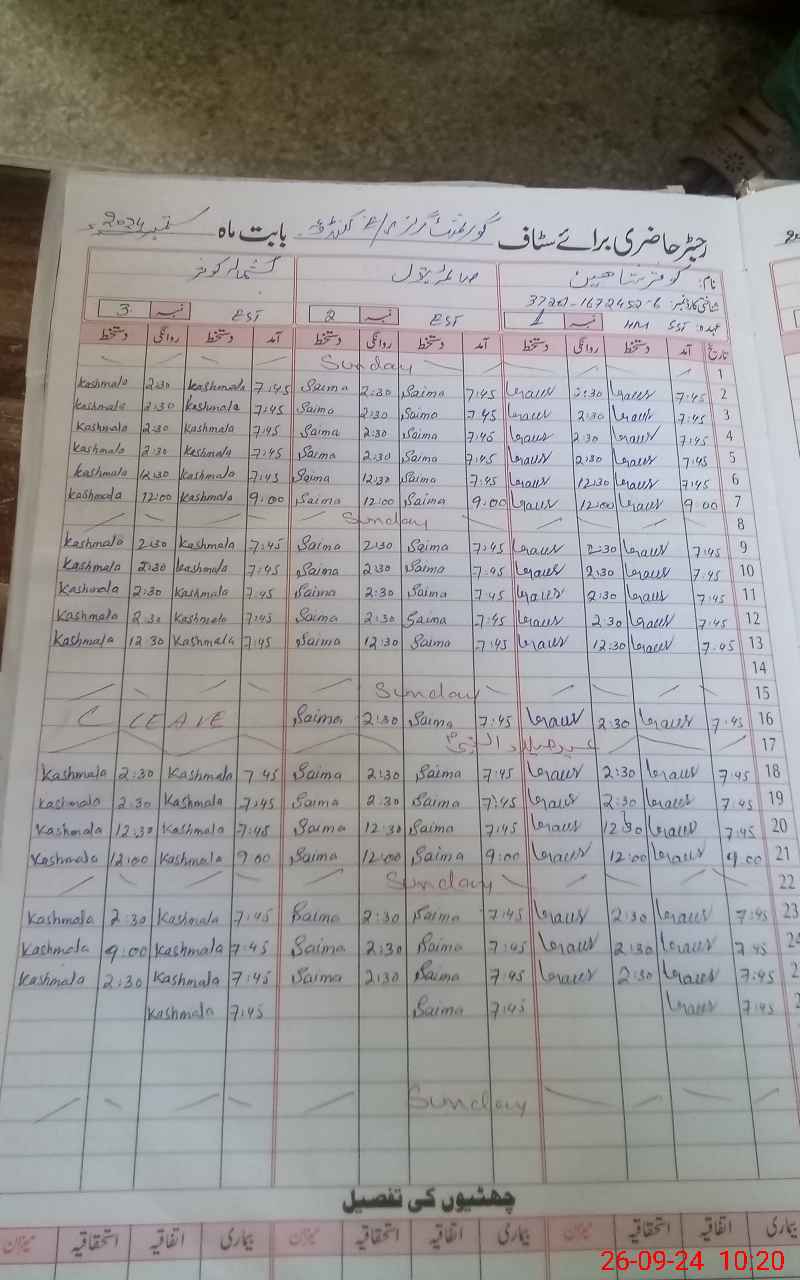 رجسٹر حاضری برائے سٹاف گورنمنٹ گرلز بابت ماہ ستمبر 2024ء
نام: کوثر شاہین صائمہ بتول کشمالہ کوثر
شناختی کارڈ نمبر: 37201-1672452-6
عہدہ: SST HM نمبر 1 EST نمبر 2 EST نمبر 3
تاریخ آمد دستخط روانگی دستخط آمد دستخط روانگی دستخط آمد دستخط روانگی دستخط
1 Sunday
Kashmala 2:30 Kashmala 7:45 Saima 2:30 Saima 7:45 2:30 7:45 2
Kashmala 2:30 Kashmala 7:45 Saima 2:30 Saima 7:45 2:30 7:45 3
Kashmala 2:30 Kashmala 7:45 Saima 2:30 Saima 7:45 2:30 7:45 4
Kashmala 2:30 Kashmala 7:45 Saima 2:30 Saima 7:45 2:30 7:45 5
Kashmala 12:30 Kashmala 7:45 Saima 12:30 Saima 7:45 12:30 7:45 6
Kashmala 12:00 Kashmala 9:00 Saima 12:00 Saima 9:00 12:00 9:00 7
Sunday 8
Kashmala 2:30 Kashmala 7:45 Saima 2:30 Saima 7:45 2:30 7:45 9
Kashmala 2:30 Kashmala 7:45 Saima 2:30 Saima 7:45 2:30 7:45 10
Kashmala 2:30 Kashmala 7:45 Saima 2:30 Saima 7:45 2:30 7:45 11
Kashmala 2:30 Kashmala 7:45 Saima 2:30 Saima 7:45 2:30 7:45 12
Kashmala 12:30 Kashmala 7:45 Saima 12:30 Saima 7:45 12:30 7:45 13
14
Sunday 15
C LEAVE Saima 2:30 Saima 7:45 2:30 7:45 16
عید میلاد النبیؐ 17
Kashmala 2:30 Kashmala 7:45 Saima 2:30 Saima 7:45 2:30 7:45 18
Kashmala 2:30 Kashmala 7:45 Saima 2:30 Saima 7:45 2:30 7:45 19
Kashmala 12:30 Kashmala 7:45 Saima 12:30 Saima 7:45 12:30 7:45 20
Kashmala 12:00 Kashmala 9:00 Saima 12:00 Saima 9:00 12:00 9:00 21
Sunday 22
Kashmala 2:30 Kashmala 7:45 Saima 2:30 Saima 7:45 2:30 7:45 23
Kashmala 9:00 Kashmala 7:45 Saima 2:30 Saima 7:45 2:30 7:45
Kashmala 2:30 Kashmala 7:45 Saima 2:30 Saima 7:45 2:30 7:45
Kashmala 7:45 Saima 7:45 7:45
Sunday
چھٹیوں کی تفصیل
بیماری اتفاقیہ استحقاقیہ میزان بیماری اتفاقیہ استحقاقیہ میزان بیماری اتفاقیہ استحقاقیہ میزان
26-09-24 10:20